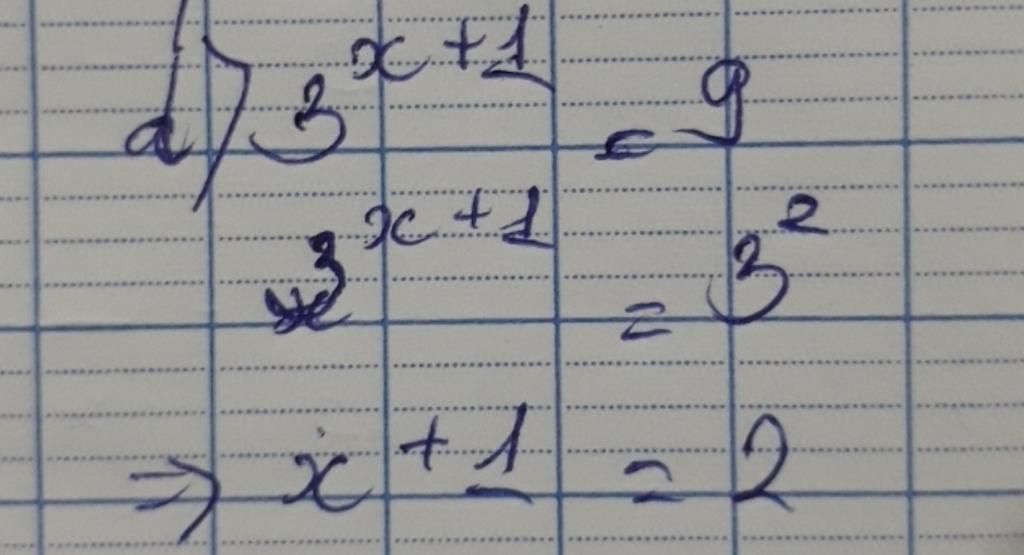 d) 3^{x+1} = 9
3^{x+1} = 3^2
⇒ x + 1 = 2